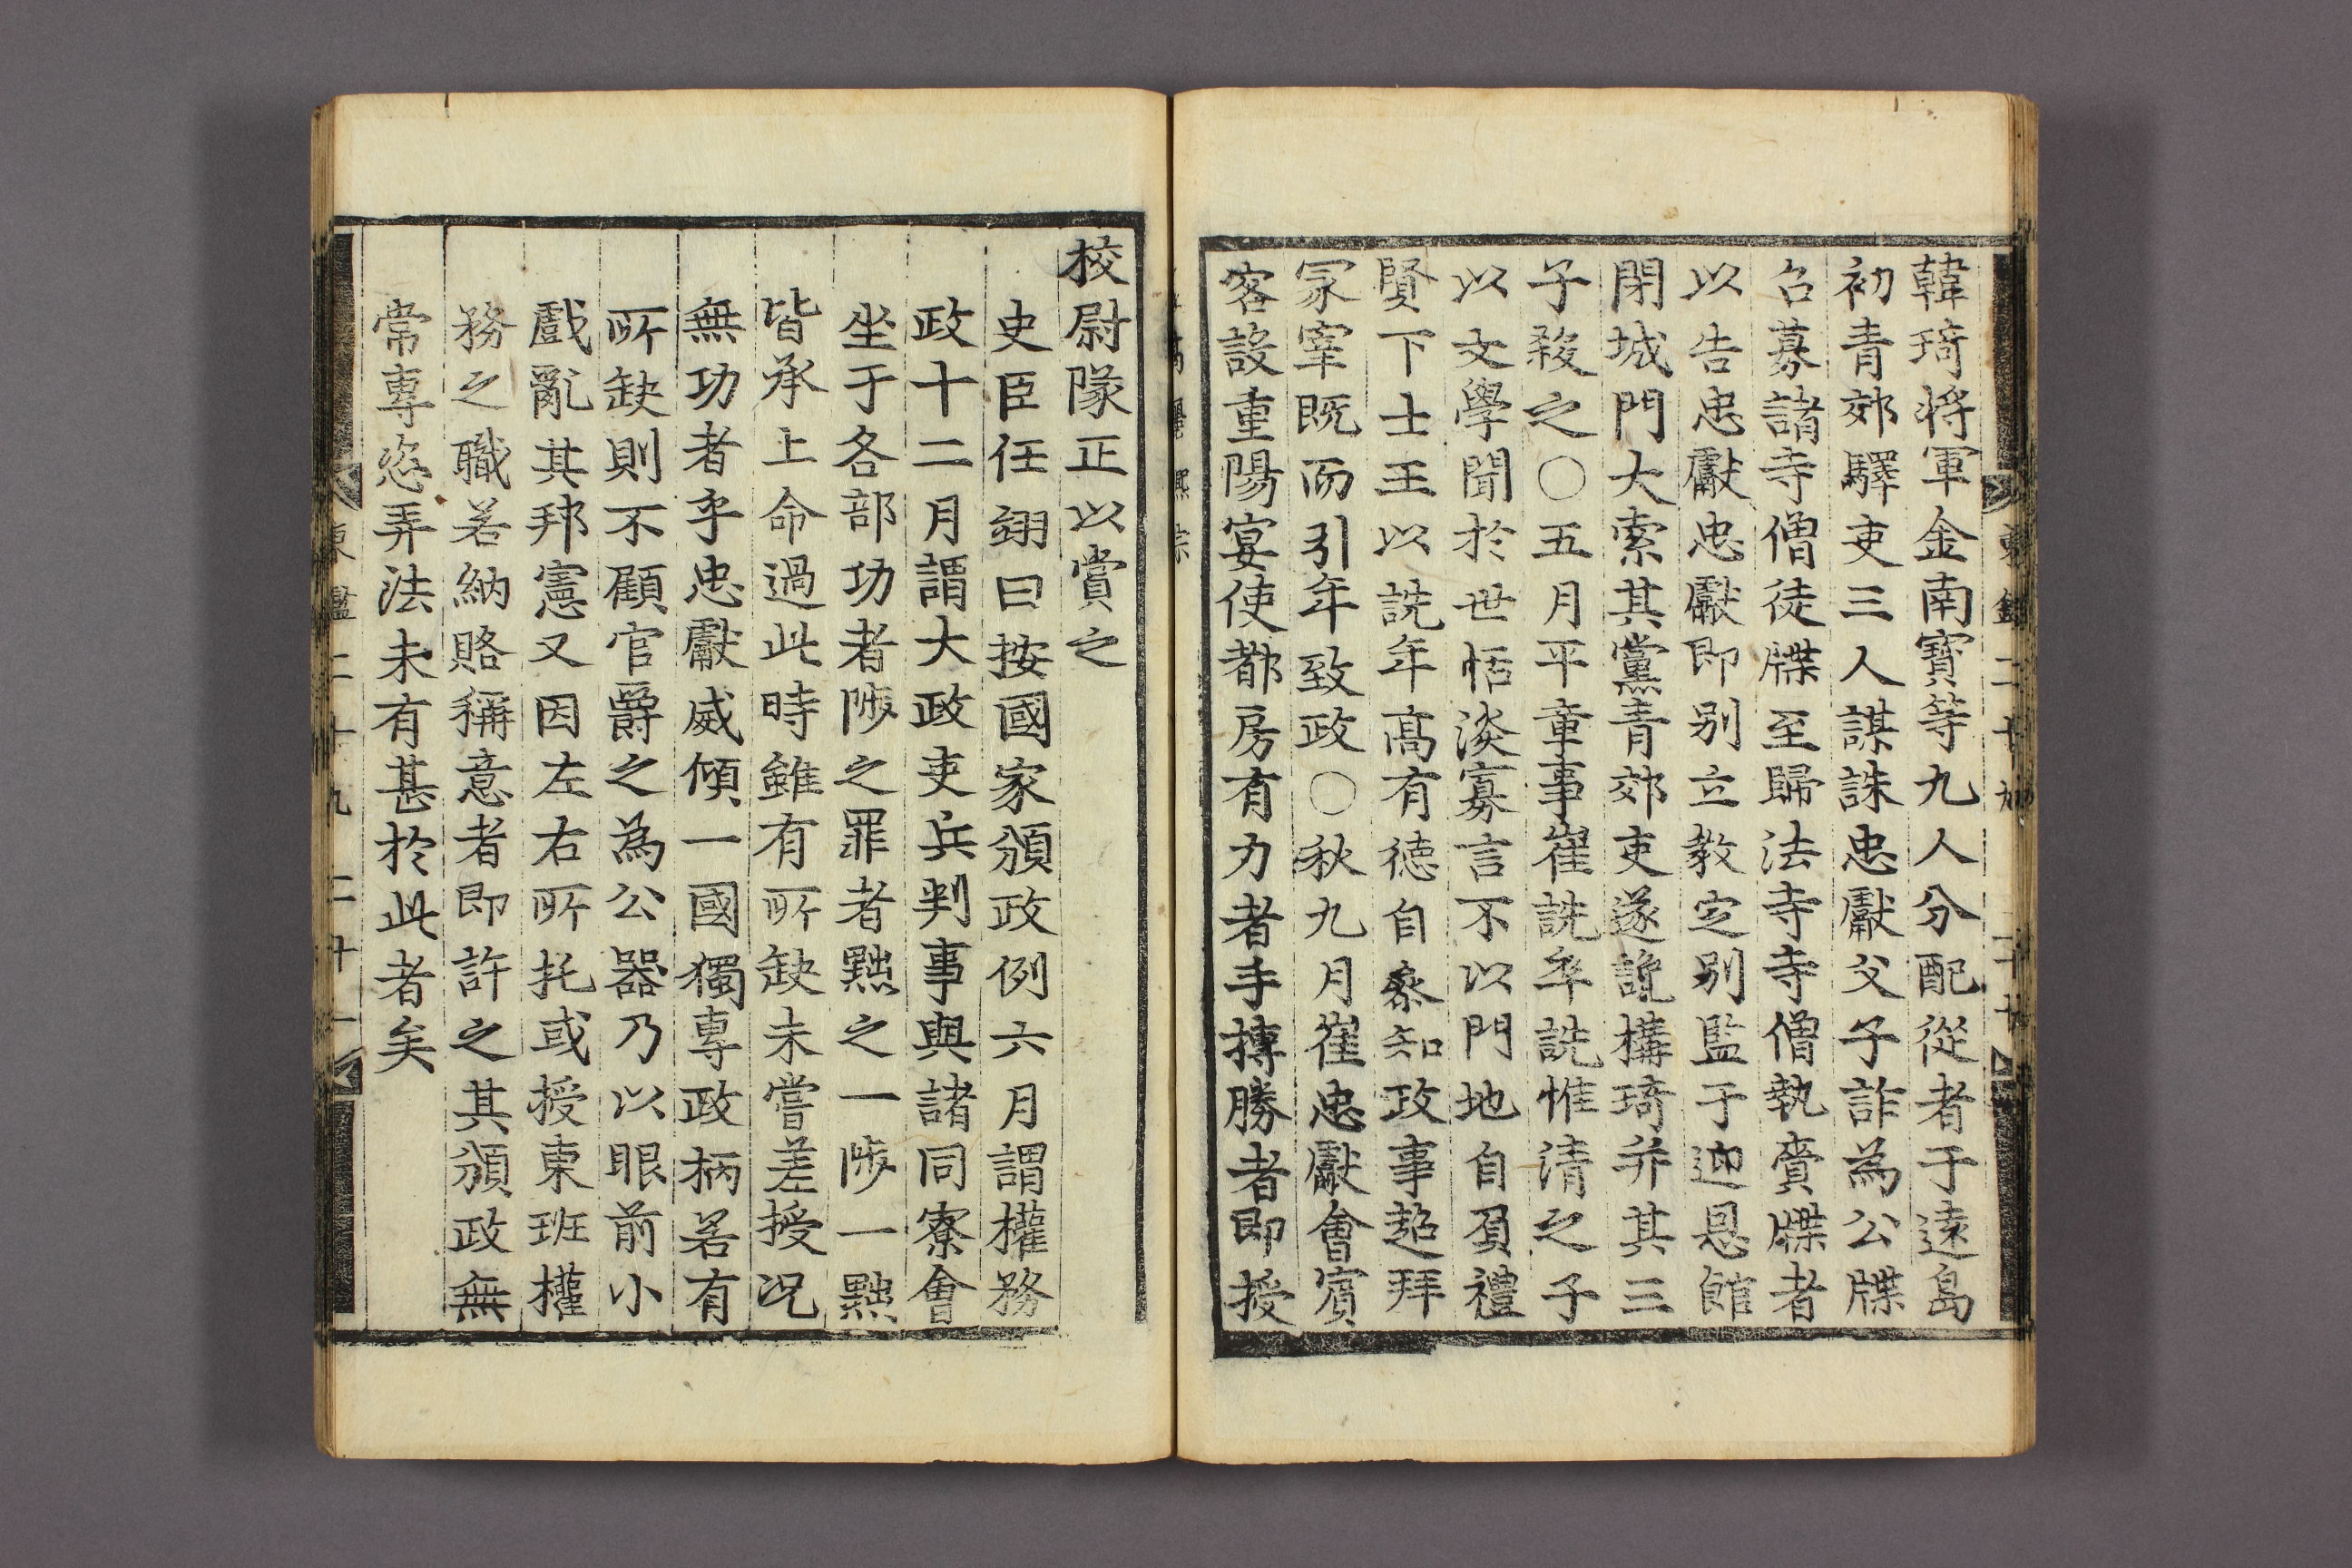 韓琦将軍金南寶等九人分配從者于遠島
初青郊驛吏三人謀誅忠獻父子詐為公牒
召募諸寺僧徒牒至歸法寺寺僧執賫牒者
以告忠獻忠獻即别立教定别監于迎恩館
閉城門大索其黨青郊吏遂讒構琦并其三
子殺之〇五月平章事崔詵卒詵惟清之子
以文學聞於世恬淡寡言不以門地自負禮
賢下士王以詵年高有德自叅知政事超拜
冢宰既而引年致政〇秋九月崔忠獻會賓
客設重陽宴使都房有力者手搏勝者即授
校尉隊正以賞之
史臣任翊曰按國家頒政例六月謂權務
政十二月謂大政吏兵判事與諸同寮會
坐于各部功者陟之罪者黜之一陟一黜
皆承上命過此時雖有所缺未嘗差授况
無功者乎忠獻威傾一國獨專政柄若有
所缺則不顧官爵之為公器乃以眼前小
戲亂其邦憲又因左右所托或授東班權
務之職若納賂稱意者即許之其頒政無
常專恣弄法未有甚於此者矣
東鑑二十九 二十一